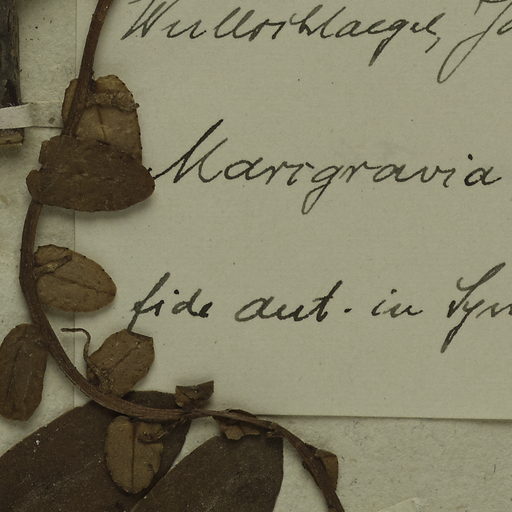 Wullschlaegel, J
Marcgravia
fide aut. in Sym